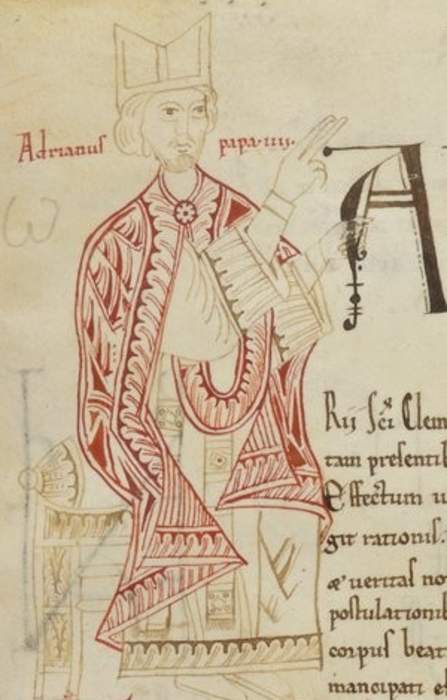 Adrianus papa·iiii·
A
Rii Sci Clem
tam presentib
Effectum u
git rationis.
æ ueritas no
postulationib
corpus beat
mancipati e